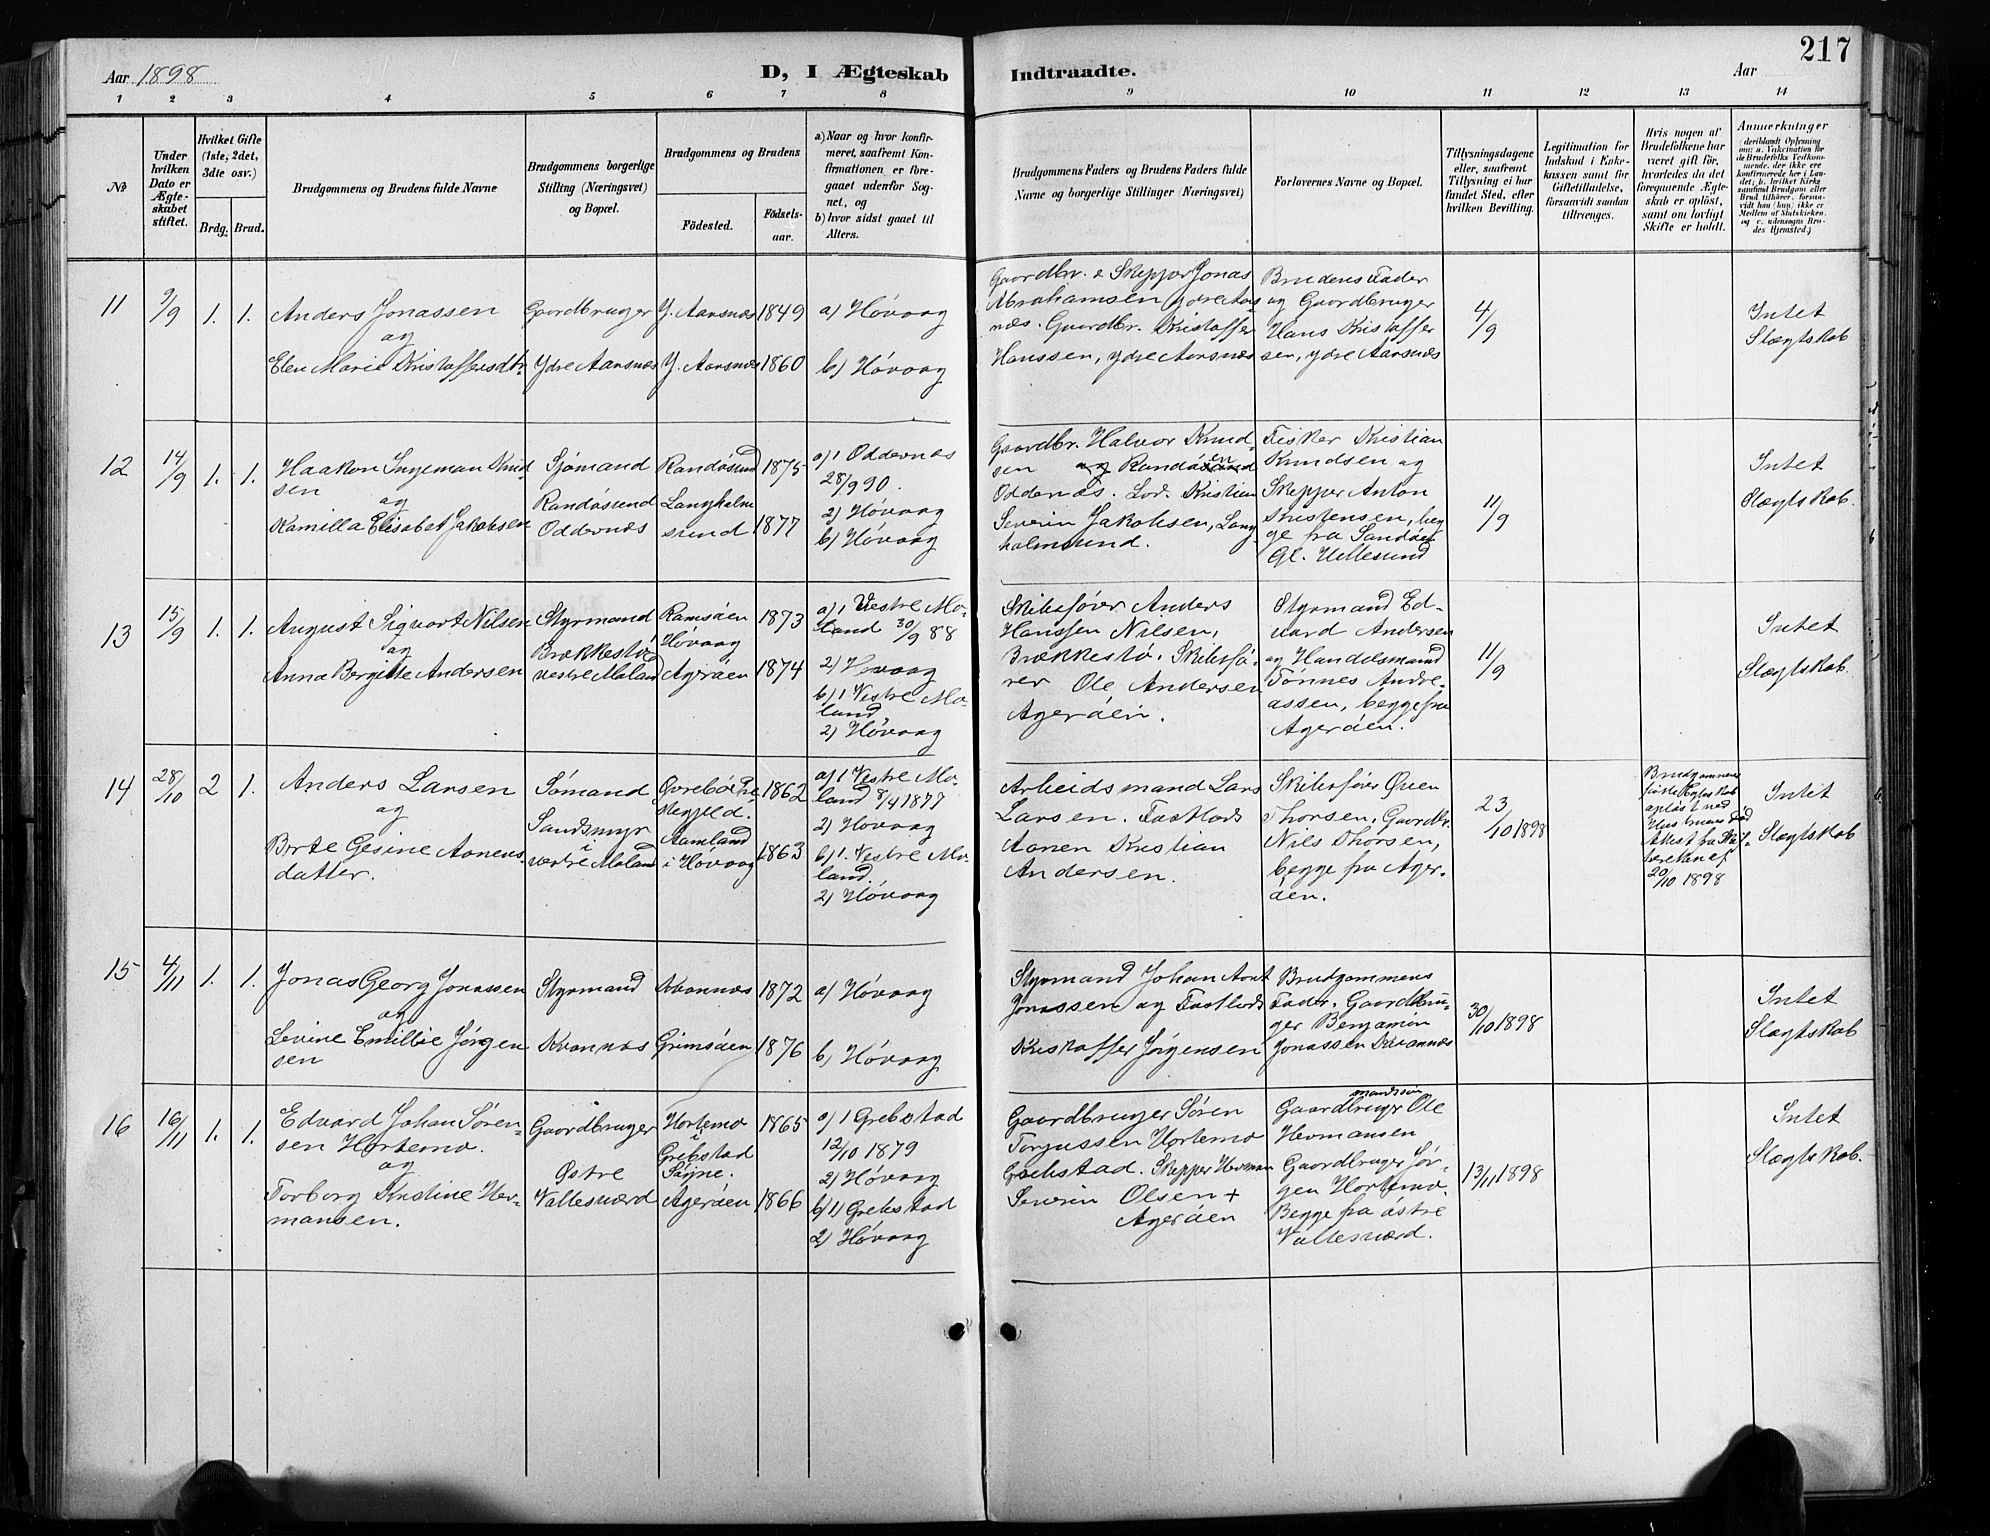 Aar 1898
D, I Ægteskab
Indtraadte.
Aar
217
1 2 3 4 5 6 7 8 9 10 11 12 13 14
No
Under hvilken Dato er Ægteskabet stiftet.
Hvilket Gifte (1ste, 2det, 3die osv.)
Brdg. Brud.
Brudgommens og Brudens fulde Navne
Brudgommens borgerlige Stilling (Næringsvei) og Bopæl.
Brudgommens og Brudens
Födested.
Födsels-aar.
a) Naar og hvor konfirmeret, saafremt Konfirmationen er foregaaet udenfor Sognet, og
b) hvor sidst gaaet til Alters.
Brudgommens Faders og Brudens Faders fulde Navne og borgerlige Stillinger (Næringsvei)
Forlovernes Navne og Bopæl.
Tillysningsdagene eller, saafremt Tillysning ei har fundet Sted, efter hvilken Bevilling.
Legitimation for Indskud i Enkekassen samt for Giftetilladelse, forsaavidt saadan tiltrænges.
Hvis nogen af Brudefolkene har været gift för, hvorledes da det foregaaende Ægteskab er oplöst, samt om lovligt Skifte er holdt.
Anmærkninger (deriblandt Oplysning om: a. Vakcination for de Brudefolks Vedkommende, der ikke ere konfirmerede her i Landet; b. hvilket Kirkesamfund Brudgom eller Brud tilhörer, forsaavidt han (hun) ikke er Medlem af Statskirken, og c. udensogns Brudes Hjemsted.)
11
9/9
1. 1.
Anders Jonassen
og
Elen Marie Kristoffersdtr.
Gaardbruger
Ydre Aarsnæs
Y. Aarsnæs 1849
Y. Aarsnæs 1860
a) Høvaag
b) Høvaag
Gaardbr. & Skipper Jonas
Abrahamsen ydre Aars-
næs. Gaardbr. Kristoffer
Hanssen, ydre Aarsnæs
Brudens Fader
og Gaardbruger
Hans Kristoffer
sen, ydre Aarsnæs
4/9
Intet
Slægtskab
12
14/9
1. 1.
Haakon Ingeman Knud
sen
og
Kamilla Elisabet Jakobsen
Sjømand
Randøsund
Oddernæs
Randøsund 1875
Langholm
sund 1877
a) 1 Oddernæs
28/9 90.
2) Høvaag
b) Høvaag
Gaardbr. Halvor Knud-
sen Randø
Oddernæs. Lod. Kristian
Severin Jakobsen, Lang
holmsund.
Fisker Kristian
Knudsen og
Skipper Anton
Kristensen, beg
ge fra Sandøen
Gl. Hellesund
11/9
Intet
Slægtskab.
13
15/9
1. 1.
August Sigvart Nilsen
og
Anna Bergitte Andersen
Styrmand
Brækkestø
vestre Moland
Ramsøen 1873
Høvaag
Agerøen 1874
a) 1 Vestre Mo-
land 30/9 88
2) Høvaag
b) 1 Vestre Mo-
land,
2) Høvaag
Skibsfører Anders
Hanssen Nilsen,
Brækkestø. Skibsfø-
rer Ole Andersen
Agerøen.
Styrmand Ed-
vard Andersen
og Handelsmand
Tønnes Andre-
assen, begge fra
Agerøen.
11/9
Intet
Slægtskab.
14
28/10
2 1.
Anders Larsen
og
Berte Gesine Aanens-
datter.
Sømand
Sandsmyr
i
vestre Moland
Øvrebø Pre
stegjeld. 1862
Aamland
i Høvaag 1863
a) 1 Vestre Mo-
land 8/4 1877
2) Høvaag
b) 1. Vestre Mo-
land.
2) Høvaag
Arbeidsmand Lars
Larsen. Fastlods
Aanen Kristian
Andersen.
Skibsfører Even
Thorsen, Gaardbr.
Nils Thorsen,
begge fra Ager-
øen.
23/10 1898
Brudgommens
første Ægteskab
opløst ved
Hustruens Død
Attest fra
20/10 1898
Intet
Slægtskab
15
4/11
1. 1.
Jonas Georg Jonassen
og
Levine Emillie Jørgen
sen
Styrmand
Kvannæs
Kvannæs 1872
Grimsøen 1876
a) Høvaag
b) Høvaag
Styrmand Johan Aart
Jonassen og Fastlods
Kristoffer Jørgensen
Brudgommens
Fader. Gaardbru-
ger Benjamin
Jonassen Kvannæs
30/10 1898
Intet
Slægtskab
16
16/11
1. 1.
Edvard Johan Søren-
sen Hortemo.
og
Torborg Kristine Her-
mansen.
Gaardbruger
Østre
Vallesværd
Hortemo 1865
i
Grebstad
Søgne.
Agerøen 1866
a) 1 Grebstad
12/10 1879
2) Høvaag
b) 1) Grebstad
2) Høvaag
Gaardbruger Søren
Torjussen Hortemo
Grebstad. Skipper Herman
Severin Olsen +
Agerøen
mandssøn
Gaardbruger Ole
Hermansen
Gaardbruger Jør-
gen Hortemo.
Begge fra østre
Vallesværd.
13/11 1898
Intet
Slægtskab.